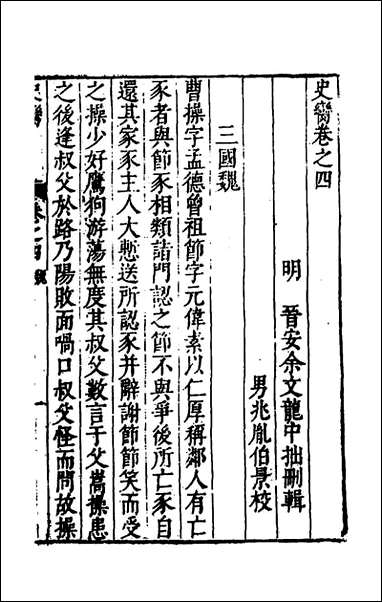 史臠卷之四
明 晉安余文龍中拙刪輯
男兆胤伯景校
三國魏
曹操字孟德曾祖節字元偉素以仁厚稱鄰人有亡
豕者與節豕相類詣門認之節不與爭後所亡豕自
還其家豕主人大慙送所認豕并辭謝節節笑而受
之操少好鷹狗游蕩無度其叔父數言于父嵩操患
之後逢叔父於路乃陽敗面喎口叔父怪而問故操
史臠
卷之四魏
一